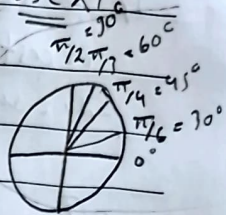 = 90°
π/2 π/3 = 60°
π/4 = 45°
π/6 = 30°
0°